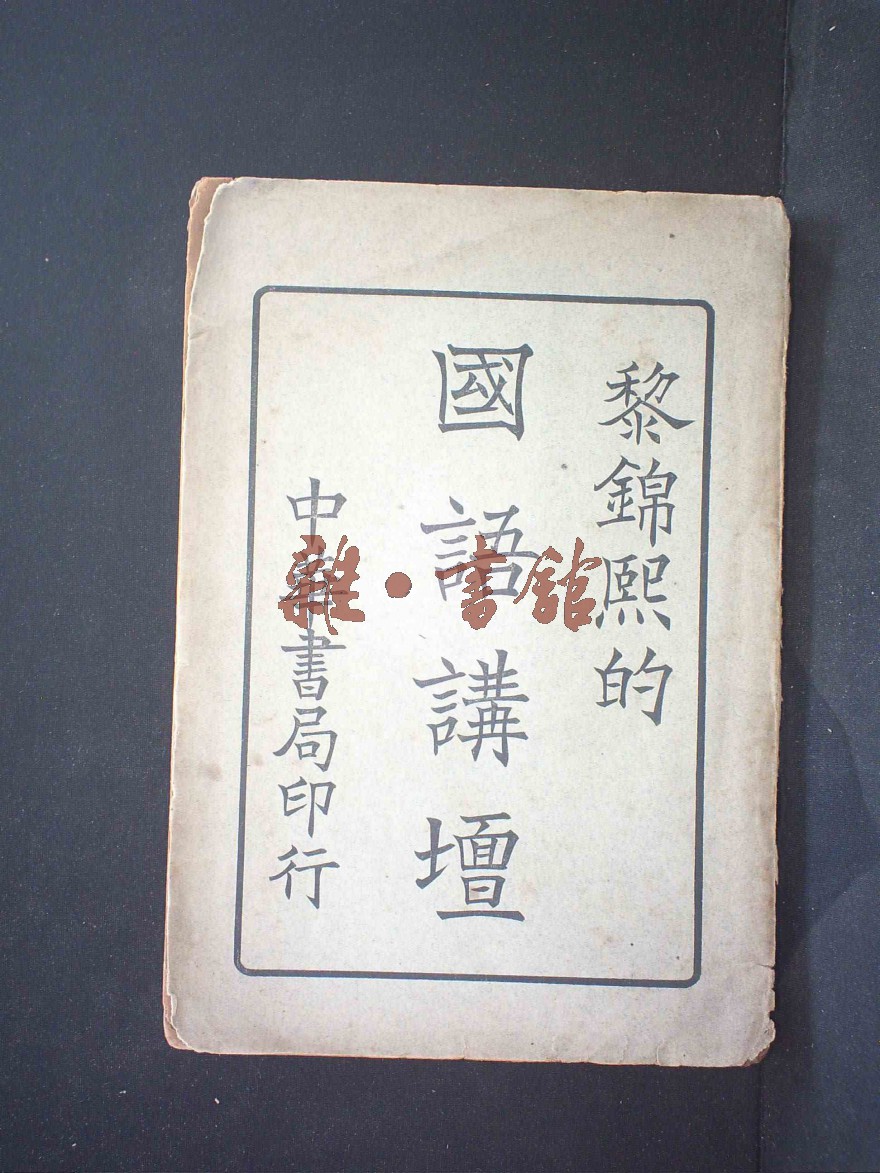 黎錦熙的
國語講壇
中華書局印行
雜·書館